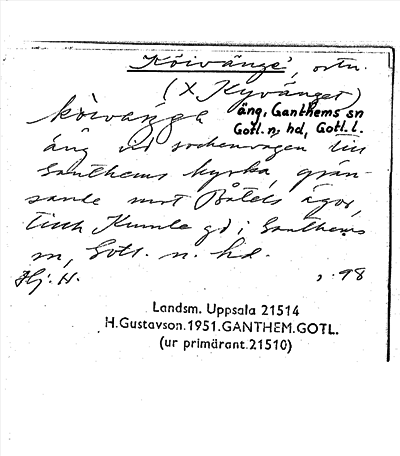 Köivänge', ortn.
(X Kyvänget)
köivaŋga äng, Ganthems sn
Gotl. n. hd, Gotl. l.
äng vid sockenvägen till
Ganthems kyrka, grän-
sande mot Båtels ägor,
tillh Kumle gd i Ganthems
sn, Gotl. n. hd.
Hj. H. 98
Landsm. Uppsala 21514
H.Gustavson.1951.GANTHEM.GOTL.
(ur primärant.21510)